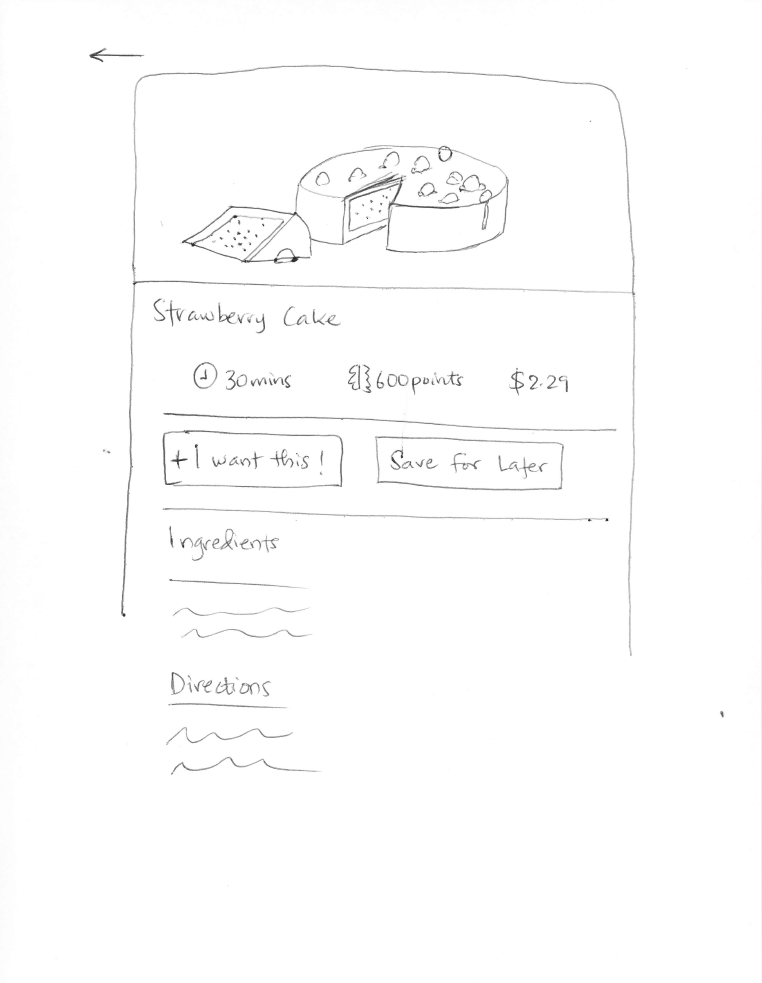 Strawberry Cake
30mins 600points $2.29
+ I want this! Save for Later
Ingredients
Directions